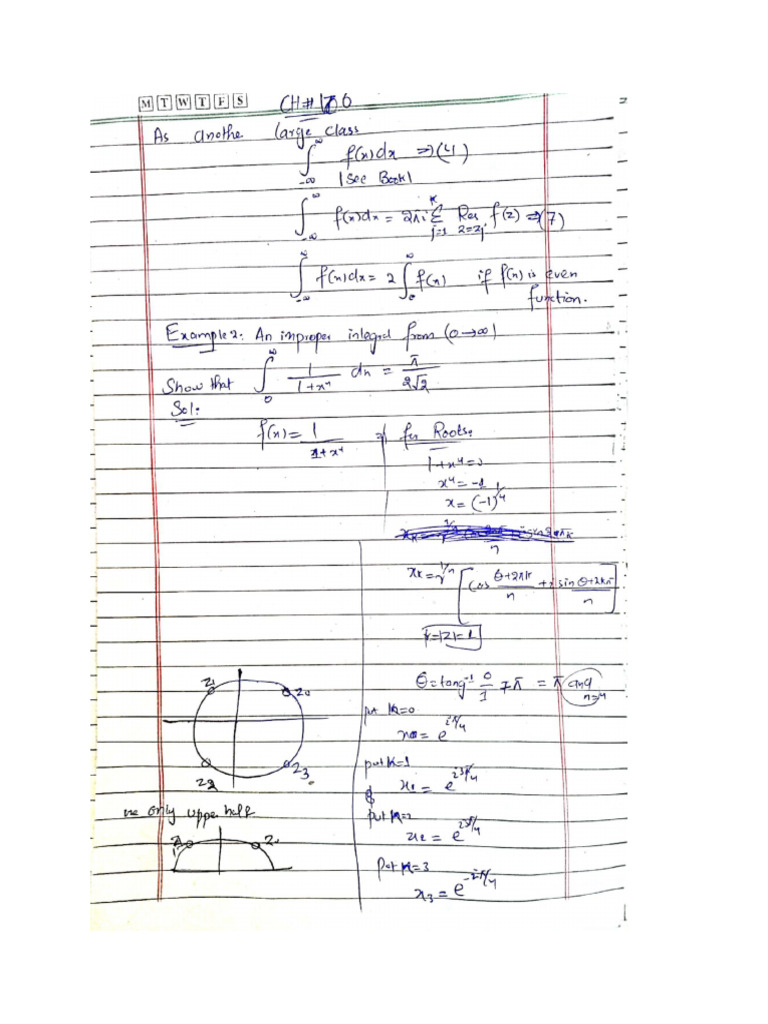 M T W T F S
CH# 16
As anothe large class
∫_{-∞}^{∞} f(x)dx ⇒ (4)
|See Book|
∫_{-∞}^{∞} f(x)dx = 2πi Σ_{j=1}^{k} Res_{z=zj} f(z) ⇒ (7)
∫_{-∞}^{∞} f(x)dx = 2 ∫_{0}^{∞} f(x) if f(x) is even
function.
Example 2: An improper integral from (0→∞)
Show that ∫_{0}^{∞} 1/(1+x⁴) dx = π/(2√2)
Sol:
f(x) = 1/(1+x⁴) ⇒ for Roots:
1+x⁴=0
x⁴=-1
x = (-1)^{1/4}
x_k = r^{1/n} [cos (θ+2πk)/n + i sin (θ+2kπ)/n]
r=|z|=1
θ = tan⁻¹ 0/1 = π and
n=4
put k=0
x₀ = e^{iπ/4}
put k=1
x₁ = e^{i3π/4}
put k=2
x₂ = e^{i5π/4}
put k=3
x₃ = e^{-iπ/4}
z₁ z₀
z₂ z₃
use only upper half
z₁ z₀